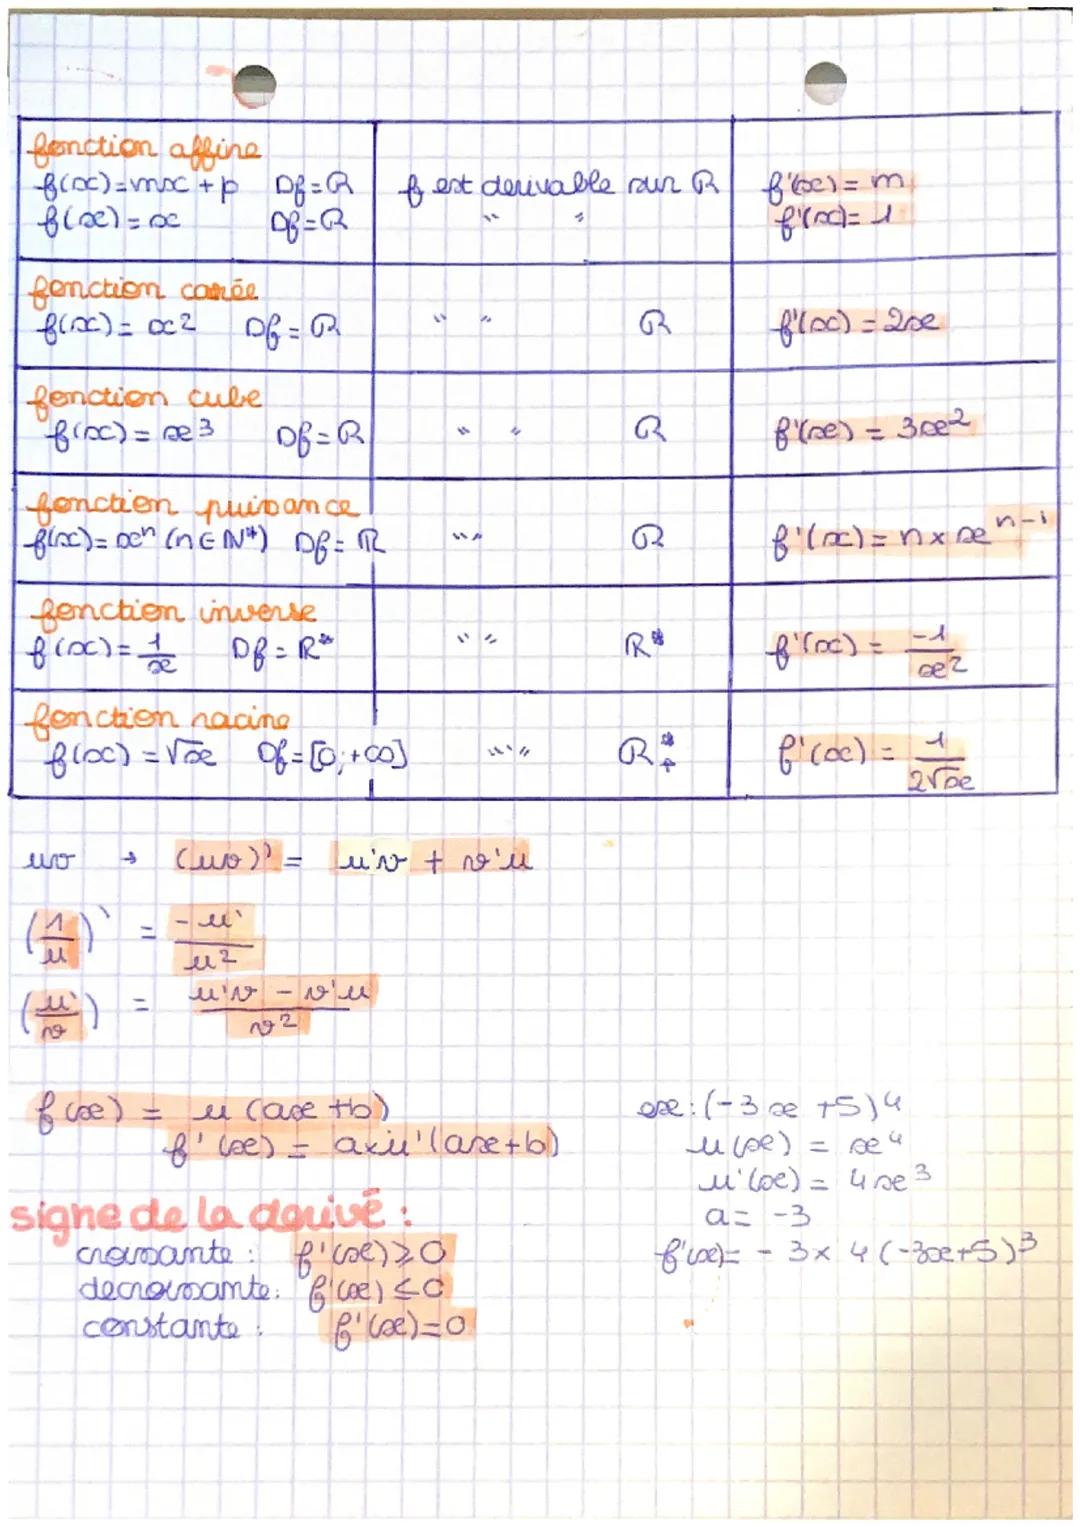 fonction affine
f(x)=mx+p Df=R f est derivable sur R f'(x)= m
f(x)=x Df=R " " f'(x)= 1
fonction carrée
f(x)= x2 Df=R " " R f'(x) = 2x
fonction cube
f(x)= x3 Df=R " " R f'(x) = 3x²
fonction puissance
f(x)= xⁿ (n∈N*) Df=R " " R f'(x)= n×xⁿ⁻¹
fonction inverse
f(x)= 1/x Df=R* " " R* f'(x) = -1/x²
fonction racine
f(x) = √x Df=[0;+∞] " " R*+ f'(x) = 1/2√x
uv → (uv)' = u'v + v'u
(1/u)' = -u'/u²
(u'/v) = u'v - v'u/v²
f(x) = u (ax+b)
f'(x) = a×u'(ax+b)
ex: (-3x+5)⁴
u(x) = x⁴
u'(x) = 4x³
a= -3
f'(x)= -3× 4(-3x+5)³
signe de la derivé :
croissante : f'(x)≥0
decroissante: f'(x)≤0
constante : f'(x)=0